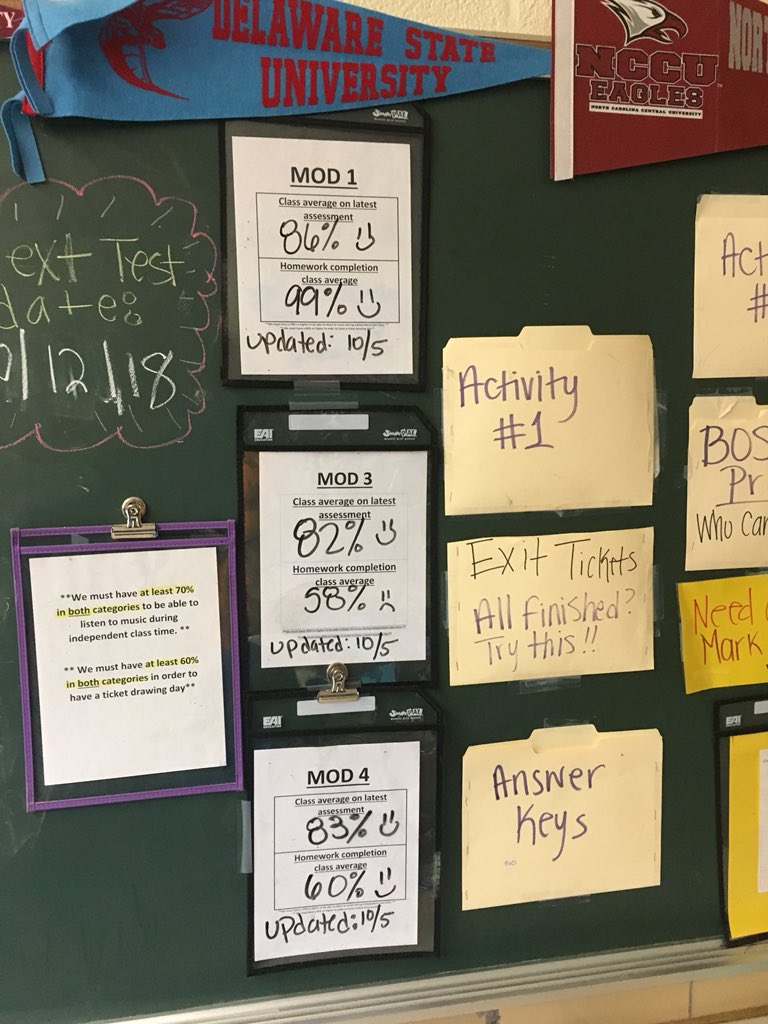 DELAWARE STATE
UNIVERSITY
NCCU
EAGLES
NORTH CAROLINA CENTRAL UNIVERSITY
ext Test
date:
/12/18
MOD 1
Class average on latest
assessment
86% :)
Homework completion
class average
99% :)
updated: 10/5
EAI
EDUCATION
MOD 3
Class average on latest
assessment
82% :)
Homework completion
class average
58% :(
updated: 10/5
**We must have at least 70%
in both categories to be able to
listen to music during
independent class time. **
** We must have at least 60%
in both categories in order to
have a ticket drawing day**
EAI
EDUCATION
MOD 4
Class average on latest
assessment
83% :)
Homework completion
class average
60% :)
updated: 10/5
Activity
#1
Exit Tickets
All finished?
Try this!!
Answer
Keys
Act
#
BOS
Pr
Who Can
Need
Mark